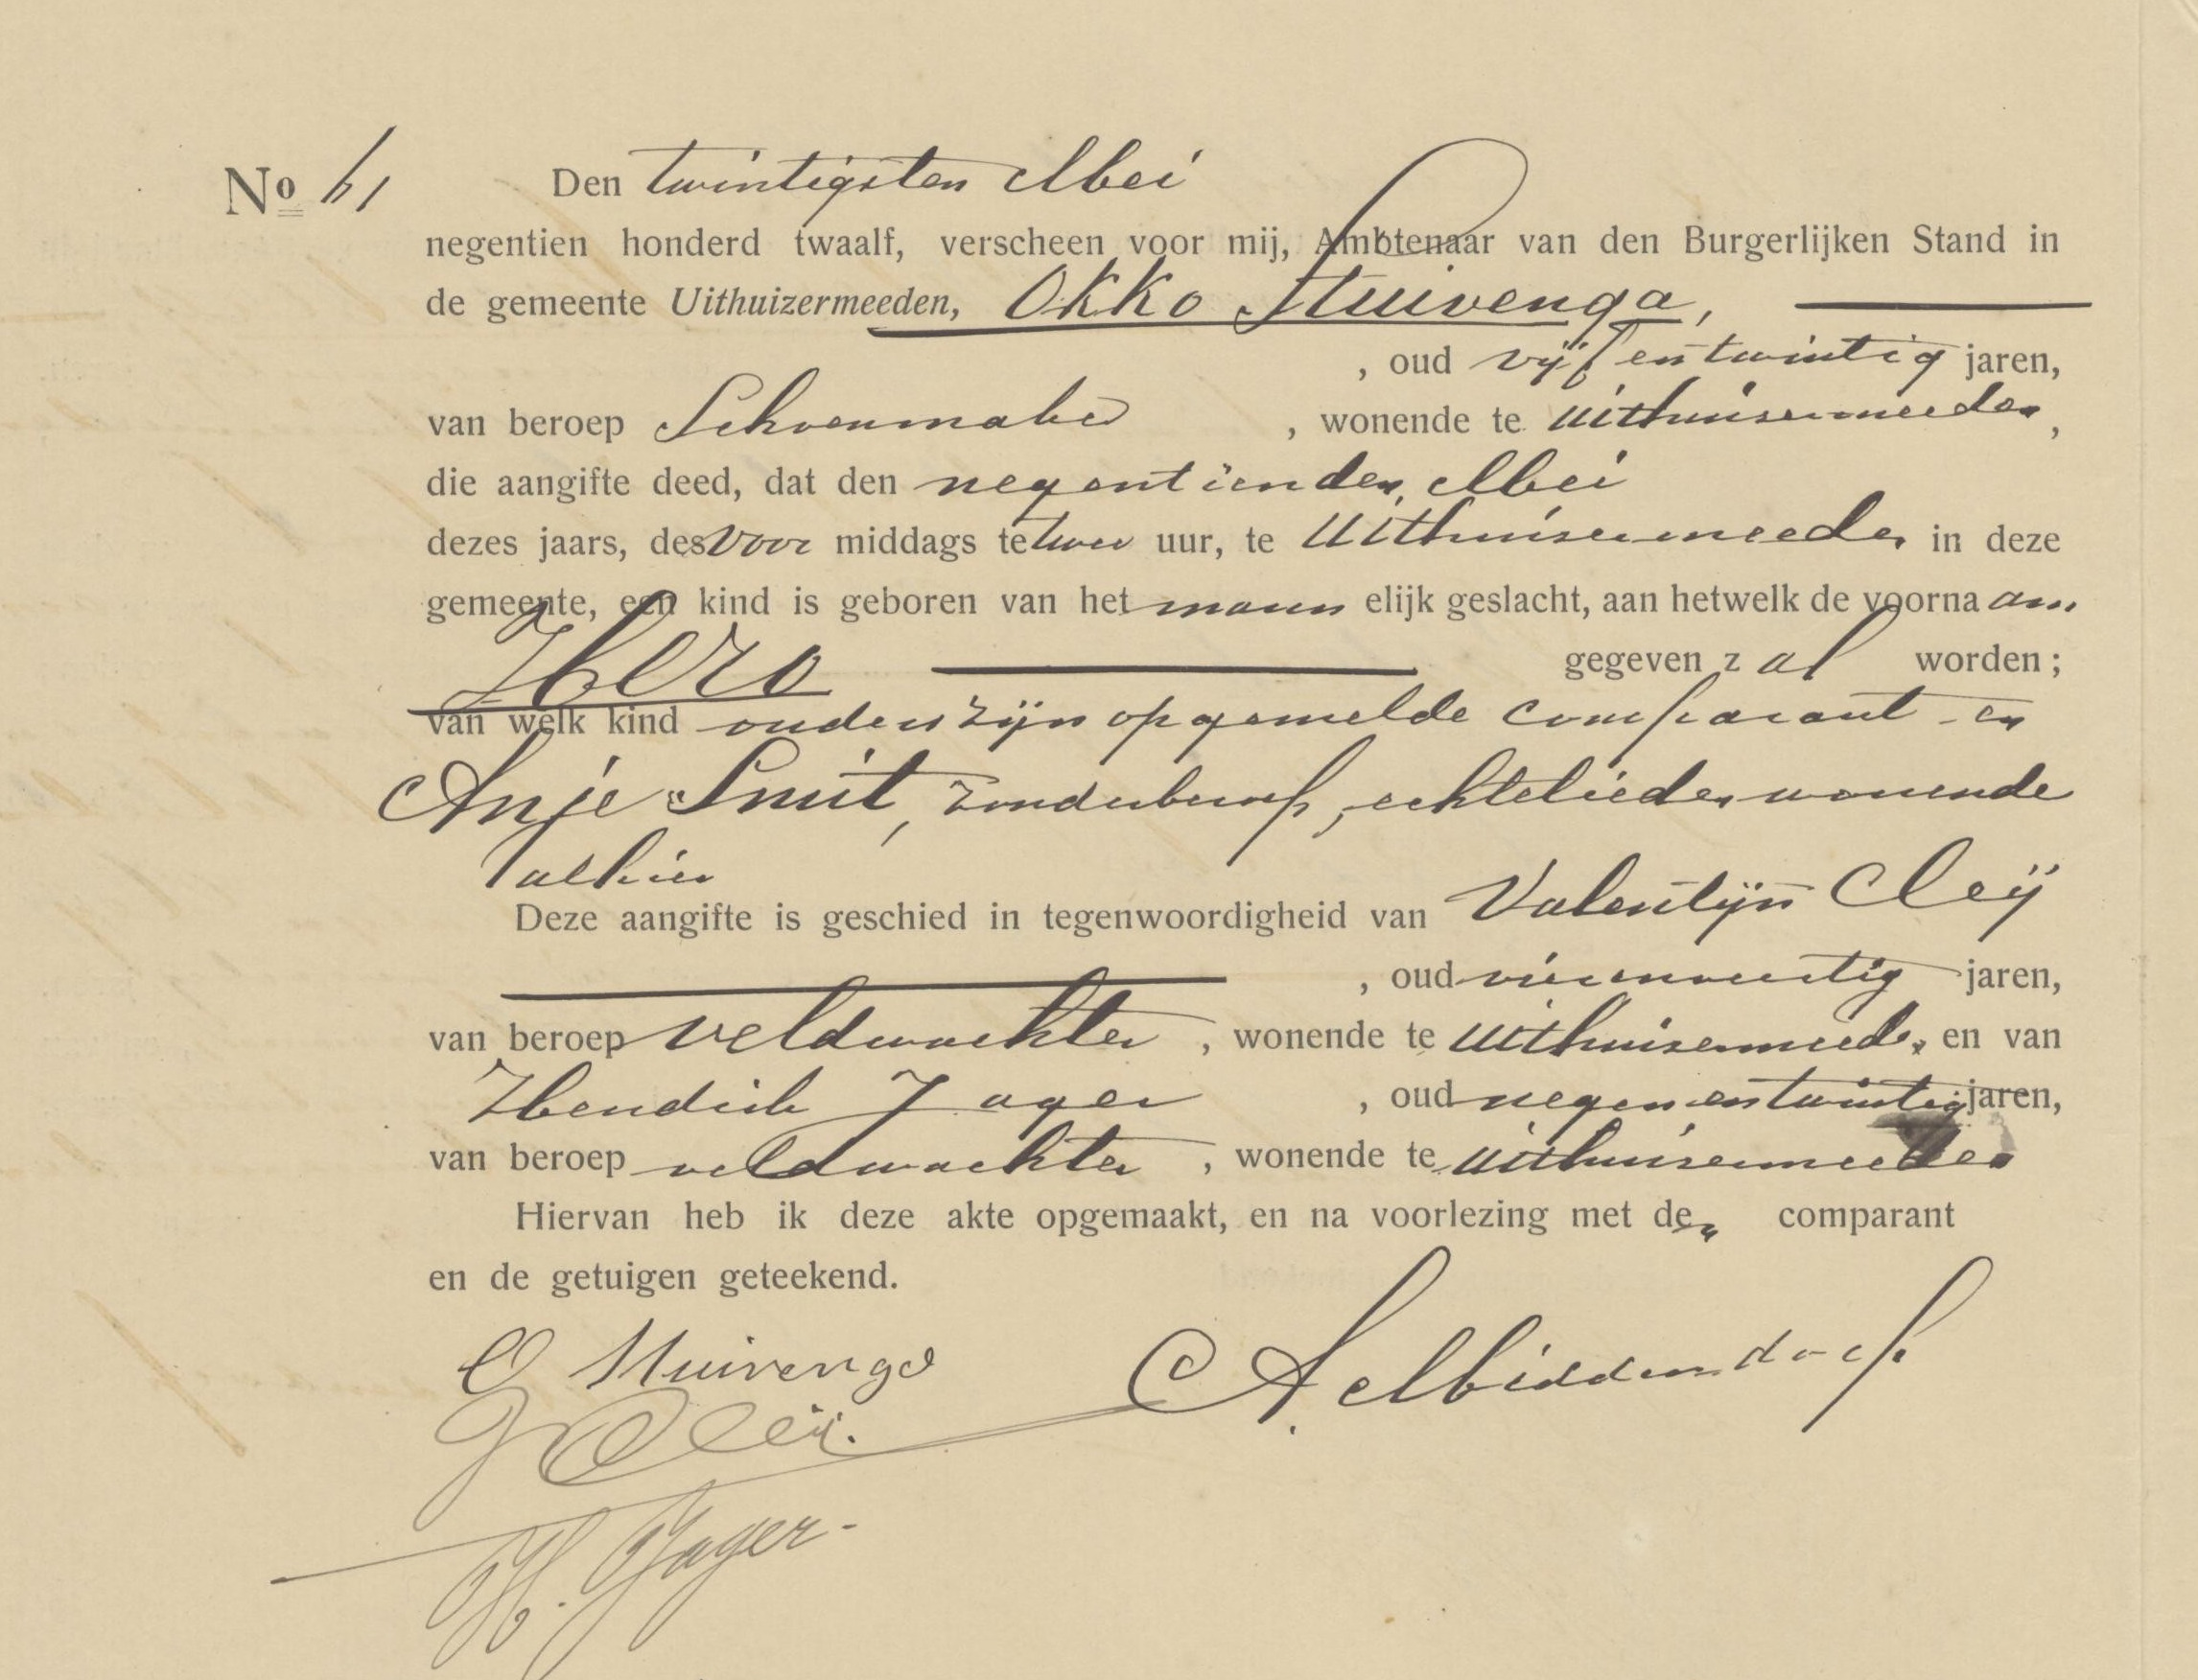 No 61 Den twintigsten Mei
negentien honderd twaalf, verscheen voor mij, Ambtenaar van den Burgerlijken Stand in
de gemeente Uithuizermeeden, Okko Stuivenga,
, oud vijf en twintig jaren,
van beroep Schoenmaker , wonende te Uithuizermeeden,
die aangifte deed, dat den negentienden Mei
dezes jaars, des voor middags te twee uur, te Uithuizermeeden in deze
gemeente, een kind is geboren van het mann elijk geslacht, aan hetwelk de voorna am
Hero gegeven z al worden;
van welk kind ouders zijn opgemelde comparant en
Anje Smit, zonder beroep, echtelieden wonende
alhier
Deze aangifte is geschied in tegenwoordigheid van Valentijn Cleij
, oud vierenveertig jaren,
van beroep veldwachter , wonende te Uithuizermeeden en van
Hendrik Jager , oud negen en twintig jaren,
van beroep veldwachter , wonende te Uithuizermeeden
Hiervan heb ik deze akte opgemaakt, en na voorlezing met den comparant
en de getuigen geteekend.
O Stuivenga
A. Middendorp
V Cleij.
H. Jager